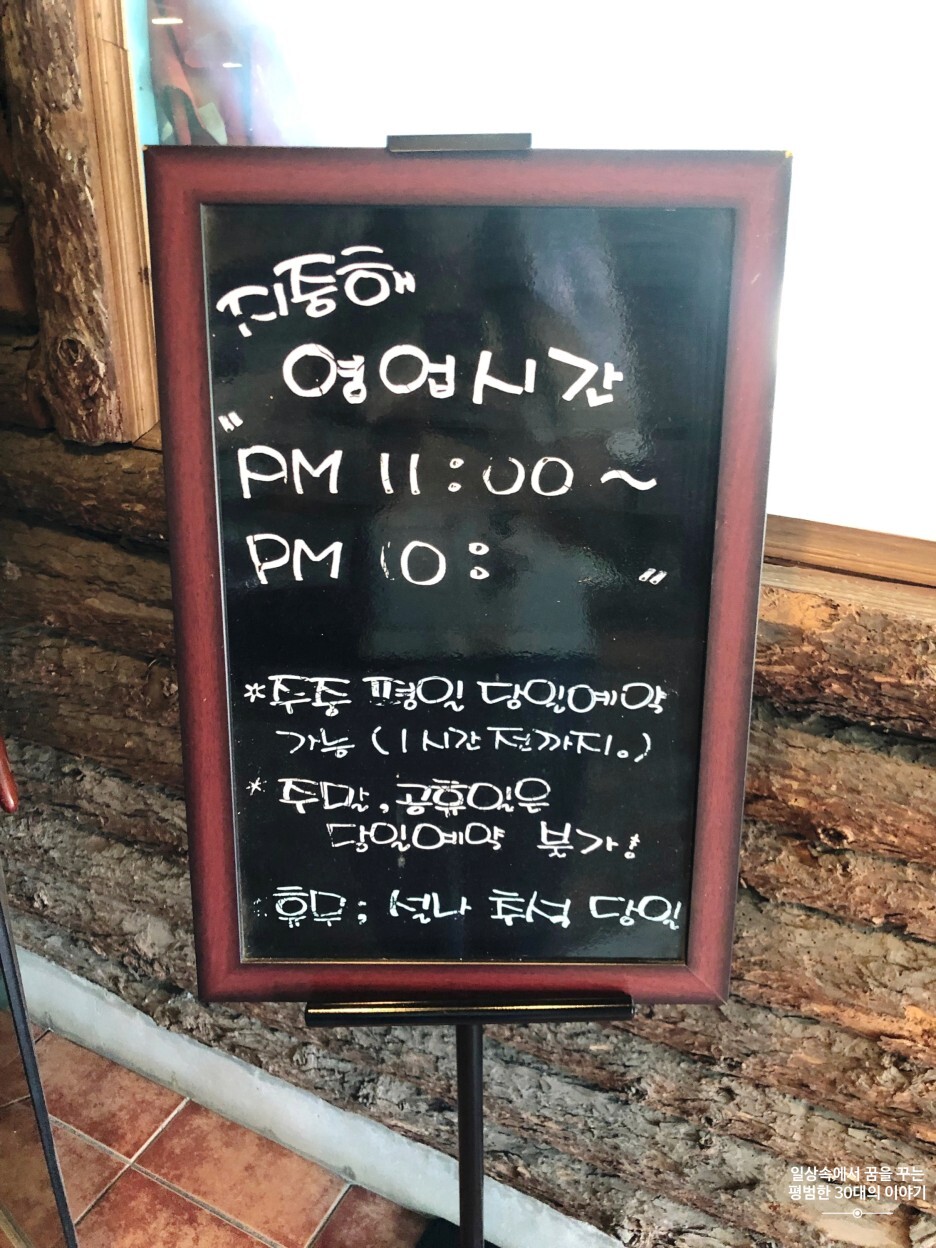 지중해
영업시간
" PM 11:00 ~
PM 10: "
*주중 평일 당일예약
가능 (1시간 전까지.)
* 주말, 공휴일은
당일예약 불가!
휴무; 설나 추석 당일
일상속에서 꿈을 꾸는
평범한 30대의 이야기